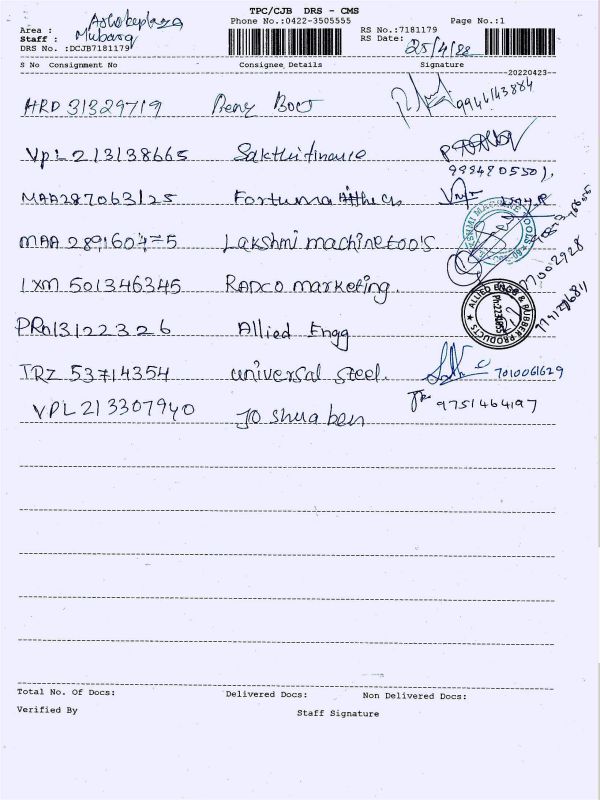 TPC/CJB DRS - CMS
Area : Ashokeplaza
Phone No.:0422-3505555
Page No.:1
Staff : Mubarag
RS No.:7181179
DRS No. :DCJB7181179
RS Date: 25/4/22
S No Consignment No Consignee Details Signature
20220423
HRD 31329719 Benz Boot 9946143884
VPL 213138665 Sakthifinance
9994805501
MAA287063125 Fortuna
MAA 289160475 Lakshmi machinetools
LXM 501346345 RADCO marketing. 77002928
ALLIED ENGG & RUBBER PRODUCTS
PRN13122326 Allied Engg
TRZ 53714354 universal steel. 7010061629
VPL 213307940 Joshuaben 9751464197
Total No. Of Docs: Delivered Docs: Non Delivered Docs:
Verified By Staff Signature